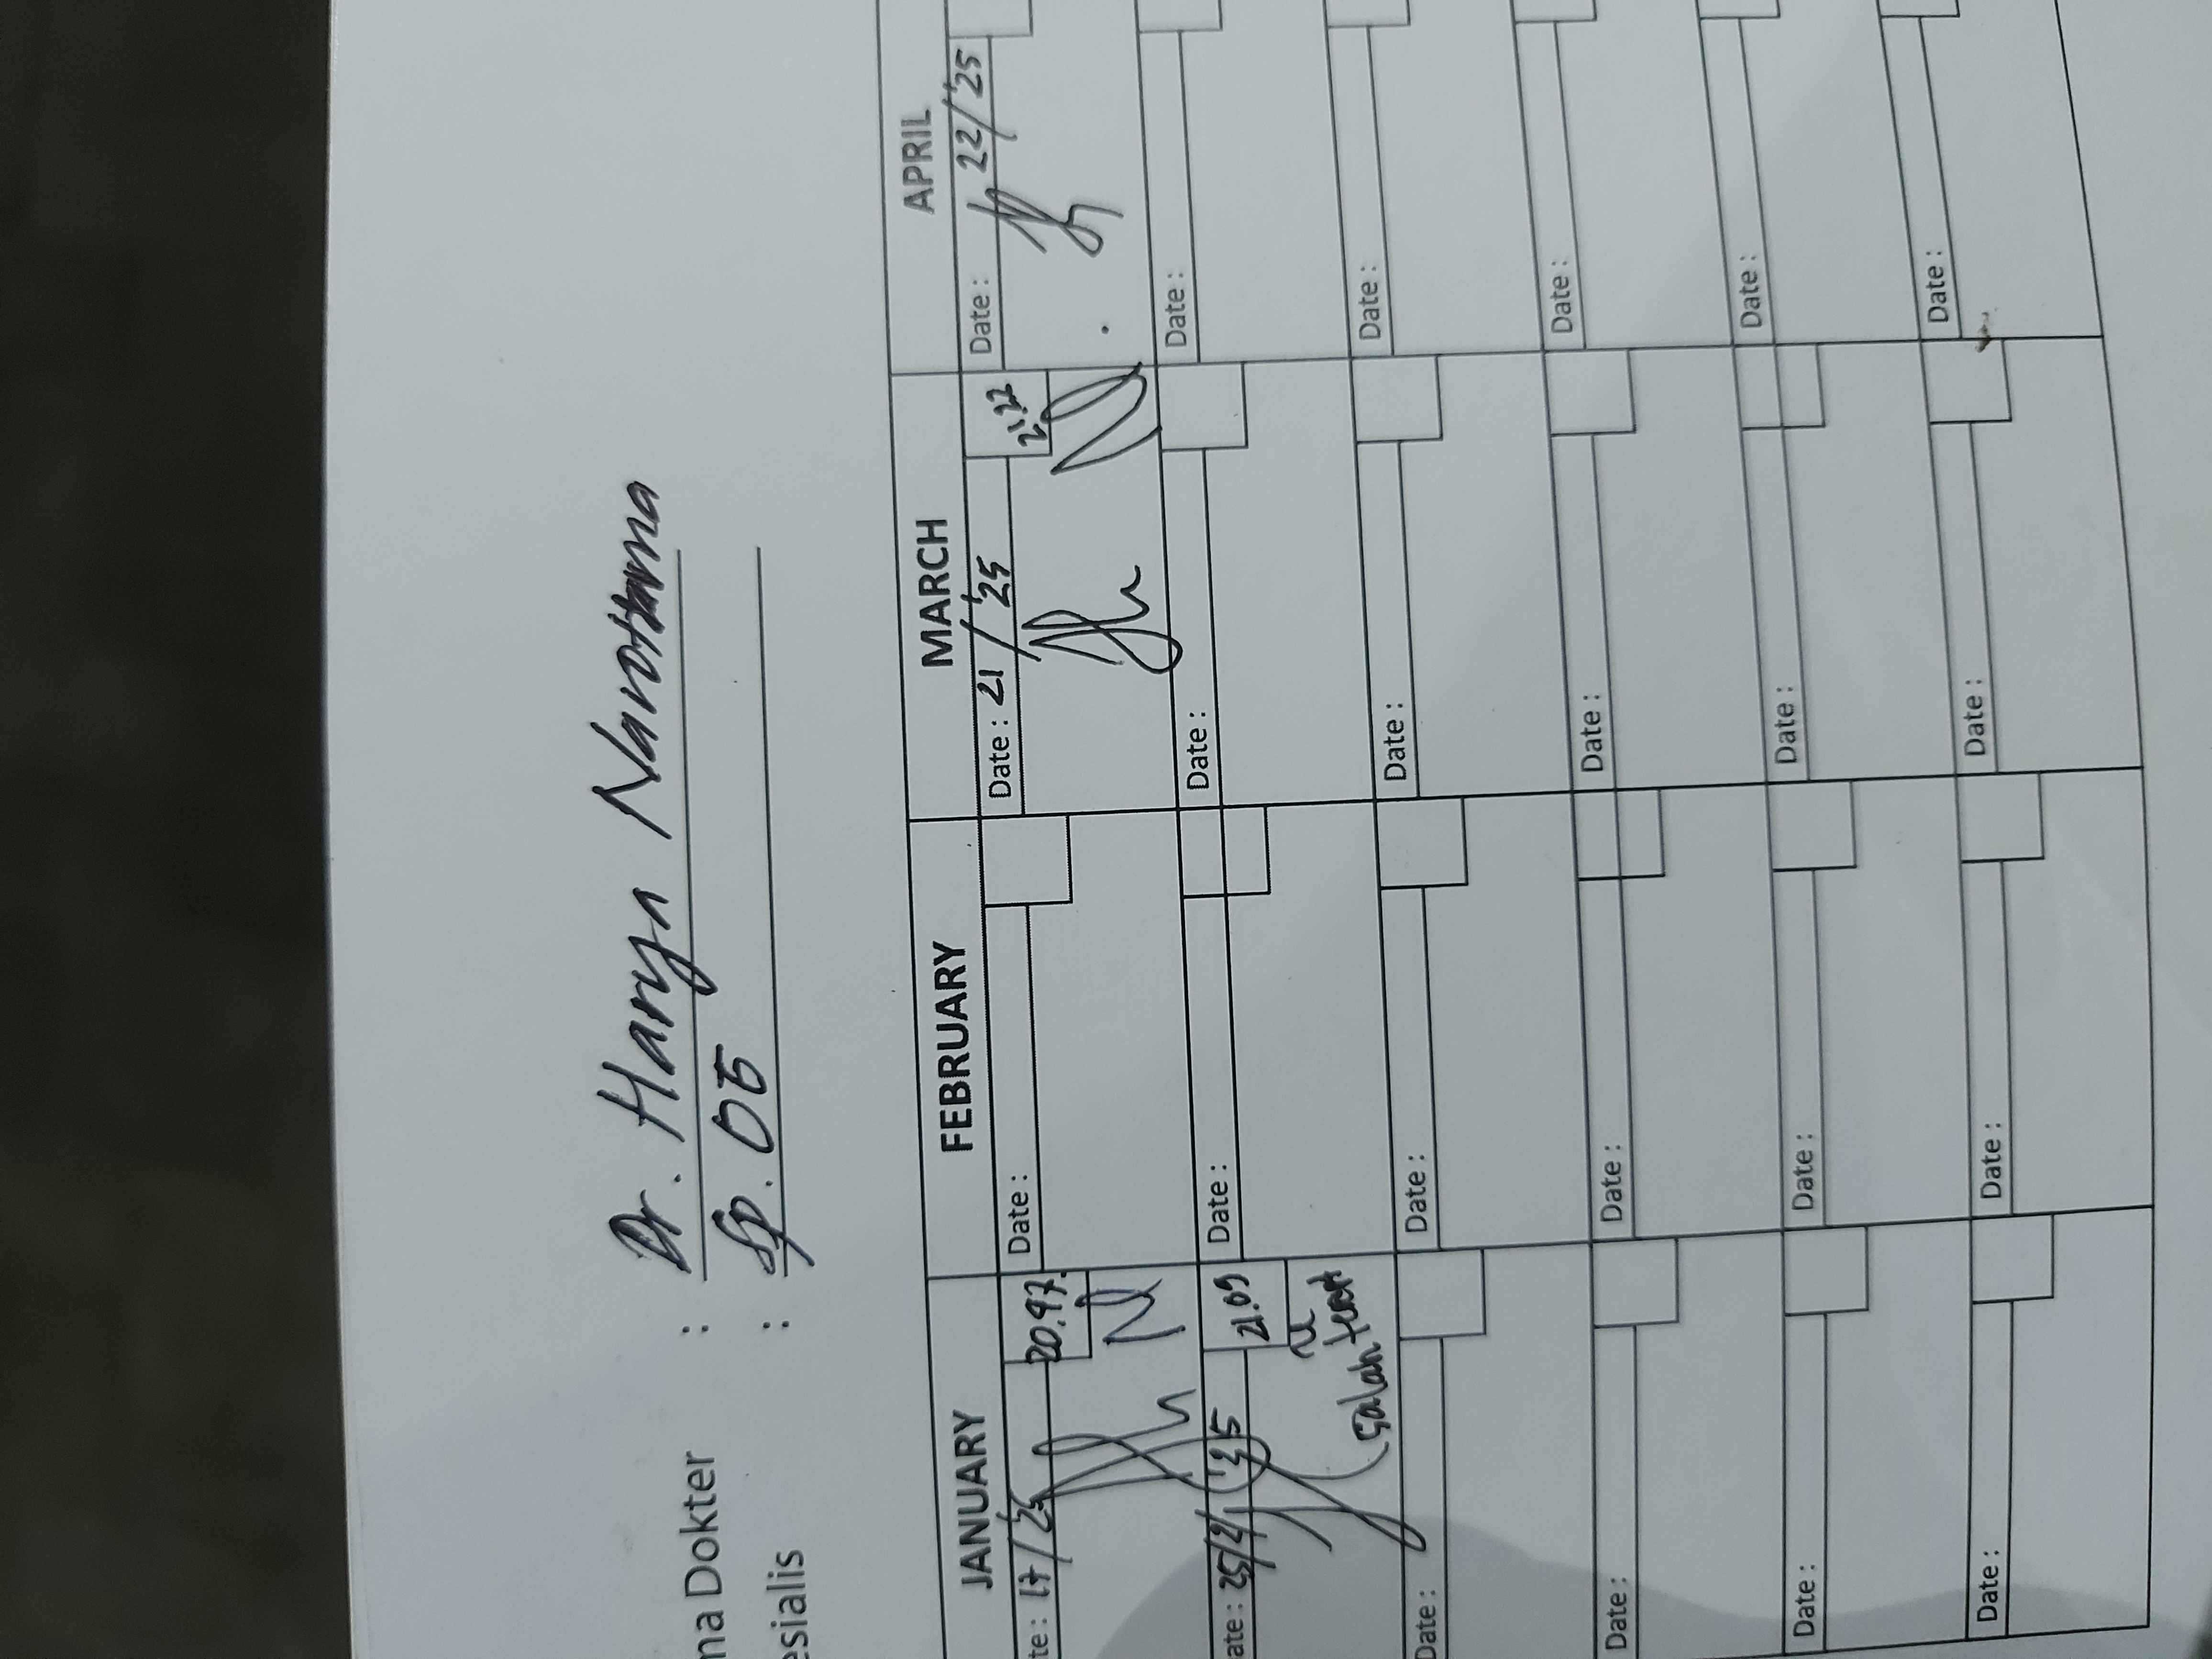 ma Dokter : Dr. Harya Narottama
esialis : Sp. OT
JANUARY FEBRUARY MARCH APRIL
te : 17/'25 20.97. Date : Date : 21/'25 21.22 Date : 22/'25
ate : 25/2/'25 21.09 Date : Date : Date :
(salah
Date : Date : Date : Date :
Date : Date : Date : Date :
Date : Date : Date : Date :
Date : Date : Date : Date :